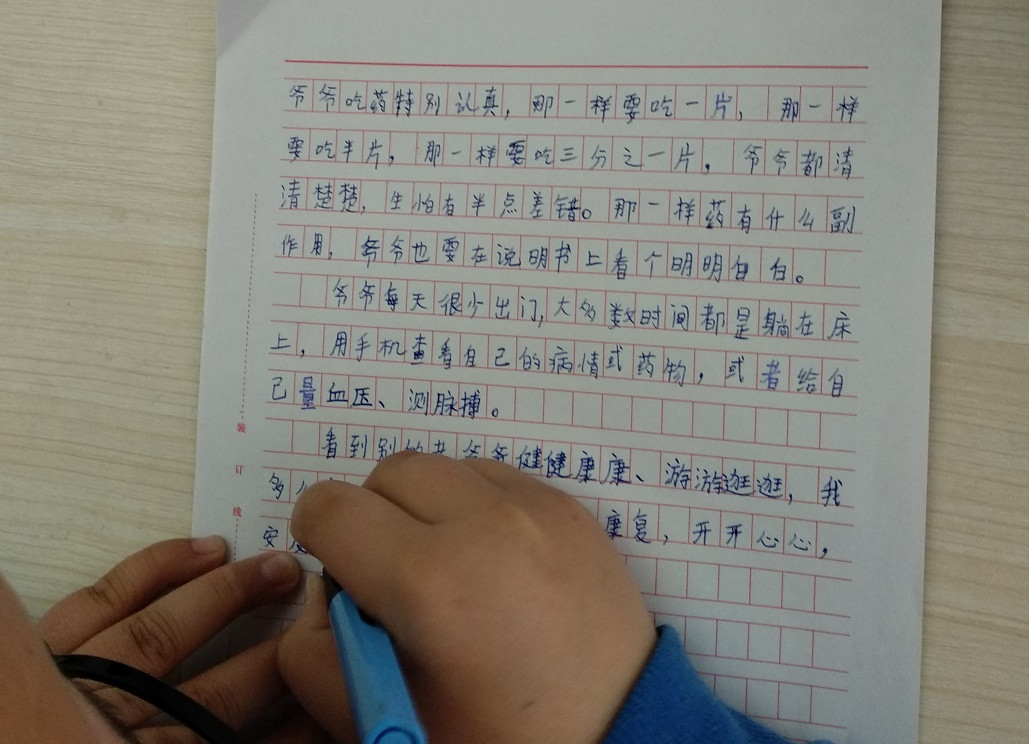 爷爷吃药特别认真，那一样要吃一片，那一样
要吃半片，那一样要吃三分之一片，爷爷都清
清楚楚，生怕有半点差错。那一样药有什么副
作用，爷爷也要在说明书上看个明明白白。
爷爷每天很少出门，大多数时间都是躺在床
上，用手机查看自己的病情或药物，或者给自
己量血压、测脉搏。
看到别的老爷爷健健康康、游游逛逛，我
多
康复，开开心心，
安度
装
订
线